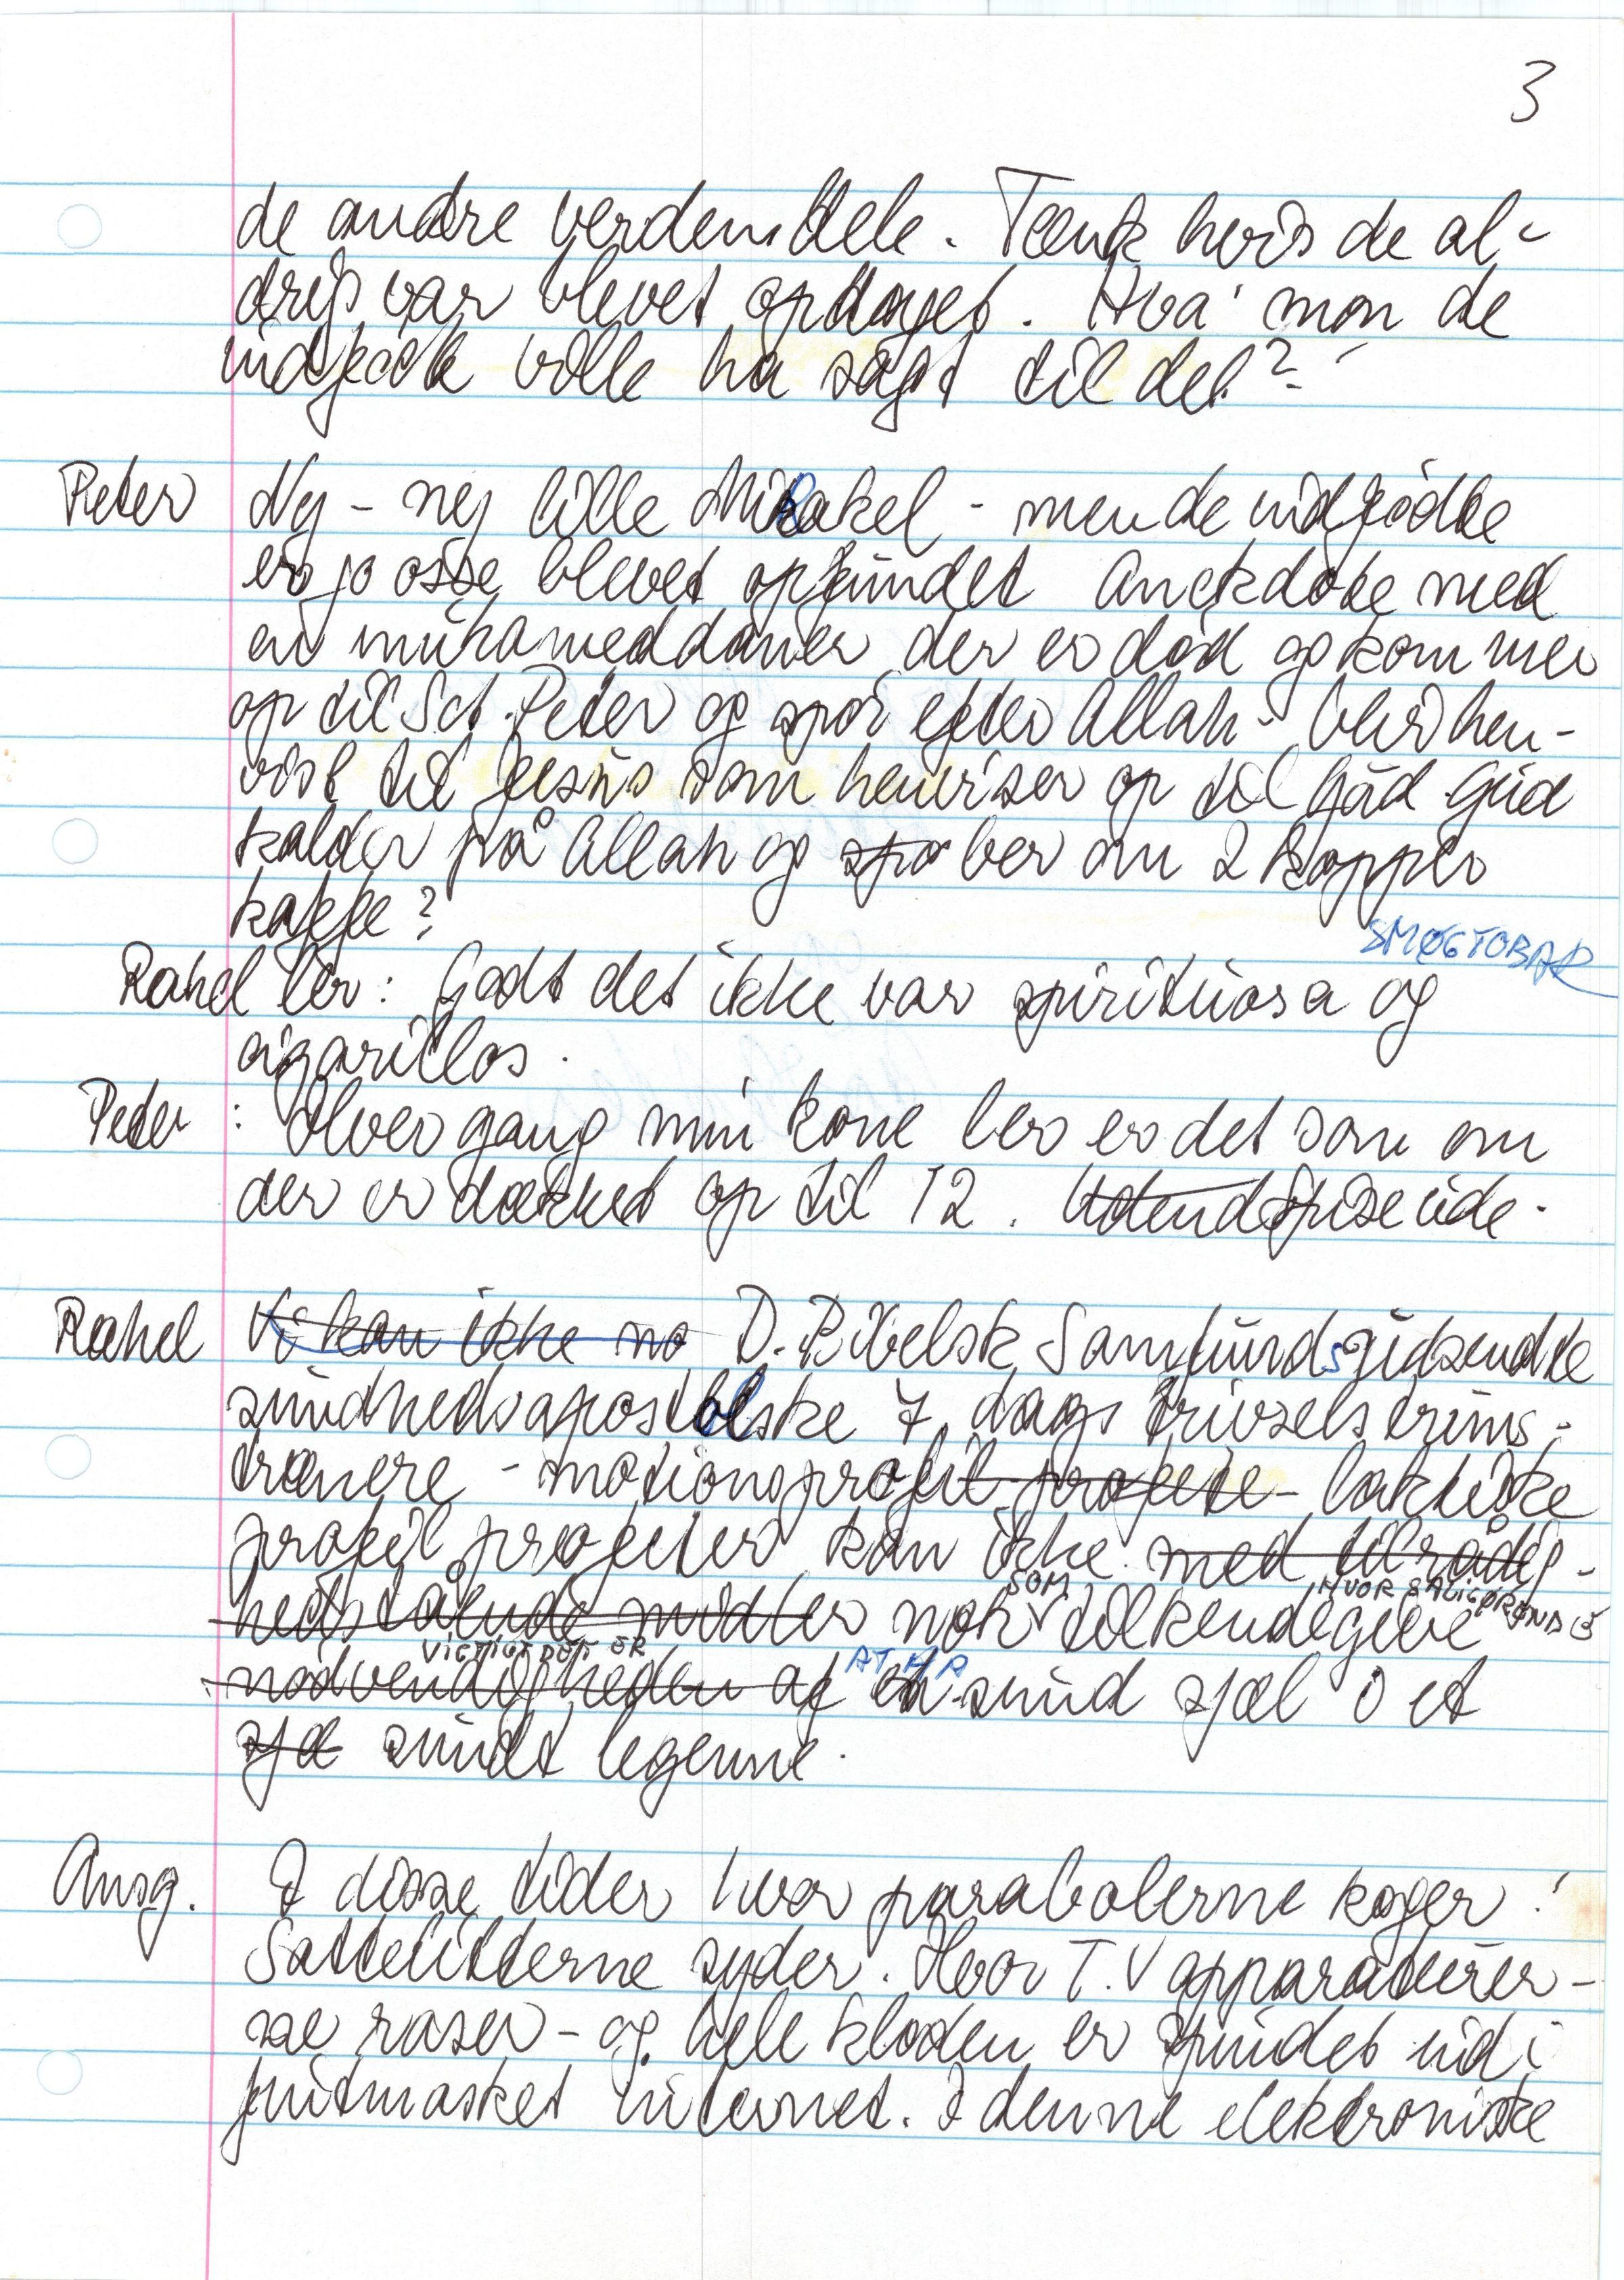 3
de andre verdensdele. Tænk hvis de al-
drig var blevet opdaget. Hva' mon de
indfødte ville ha sagt til det?
Peter Nej - nej lille Mirakel - men de indfødte
er jo osse blevet opfundet Anekdote med
en muhameddaner der er død og kommer
op til Sct. Peter og spør efter Allah - blir hen-
vist til Jesus som henviser op til Gud Gud
kalder på Allah og spø ber om 2 kopper
kaffe?
SMØGTOBAK
Rahel ler: Godt det ikke var spirituosa og
cigarillos.
Peter : Hver gang min kone ler er det som om
der er dækket op til 12. Udend Spiseude.
Rahel Vi kan ikke no D. Bibelsk Samfunds gudsendte
sundhedsapostolske 7. dags trivsels trims-
trænere - motionsprofil profete - laktiske
profil profeter kan ikke med tilrådig-
SOM HVOR SALIGGØRENDE
hedstående midler nok tilkendegive
VIGTIGT DET ER AT HA
nødvendigheden af en sund sjæl i et
sjæ sundt legeme.
Ansg. I disse tider hvor parabolerne koger!
Sattelitterne syder. Hvor T.V apparaturer-
ne raser - og hele kloden er spundet ind i
fintmasket internet. I denne elektroniske